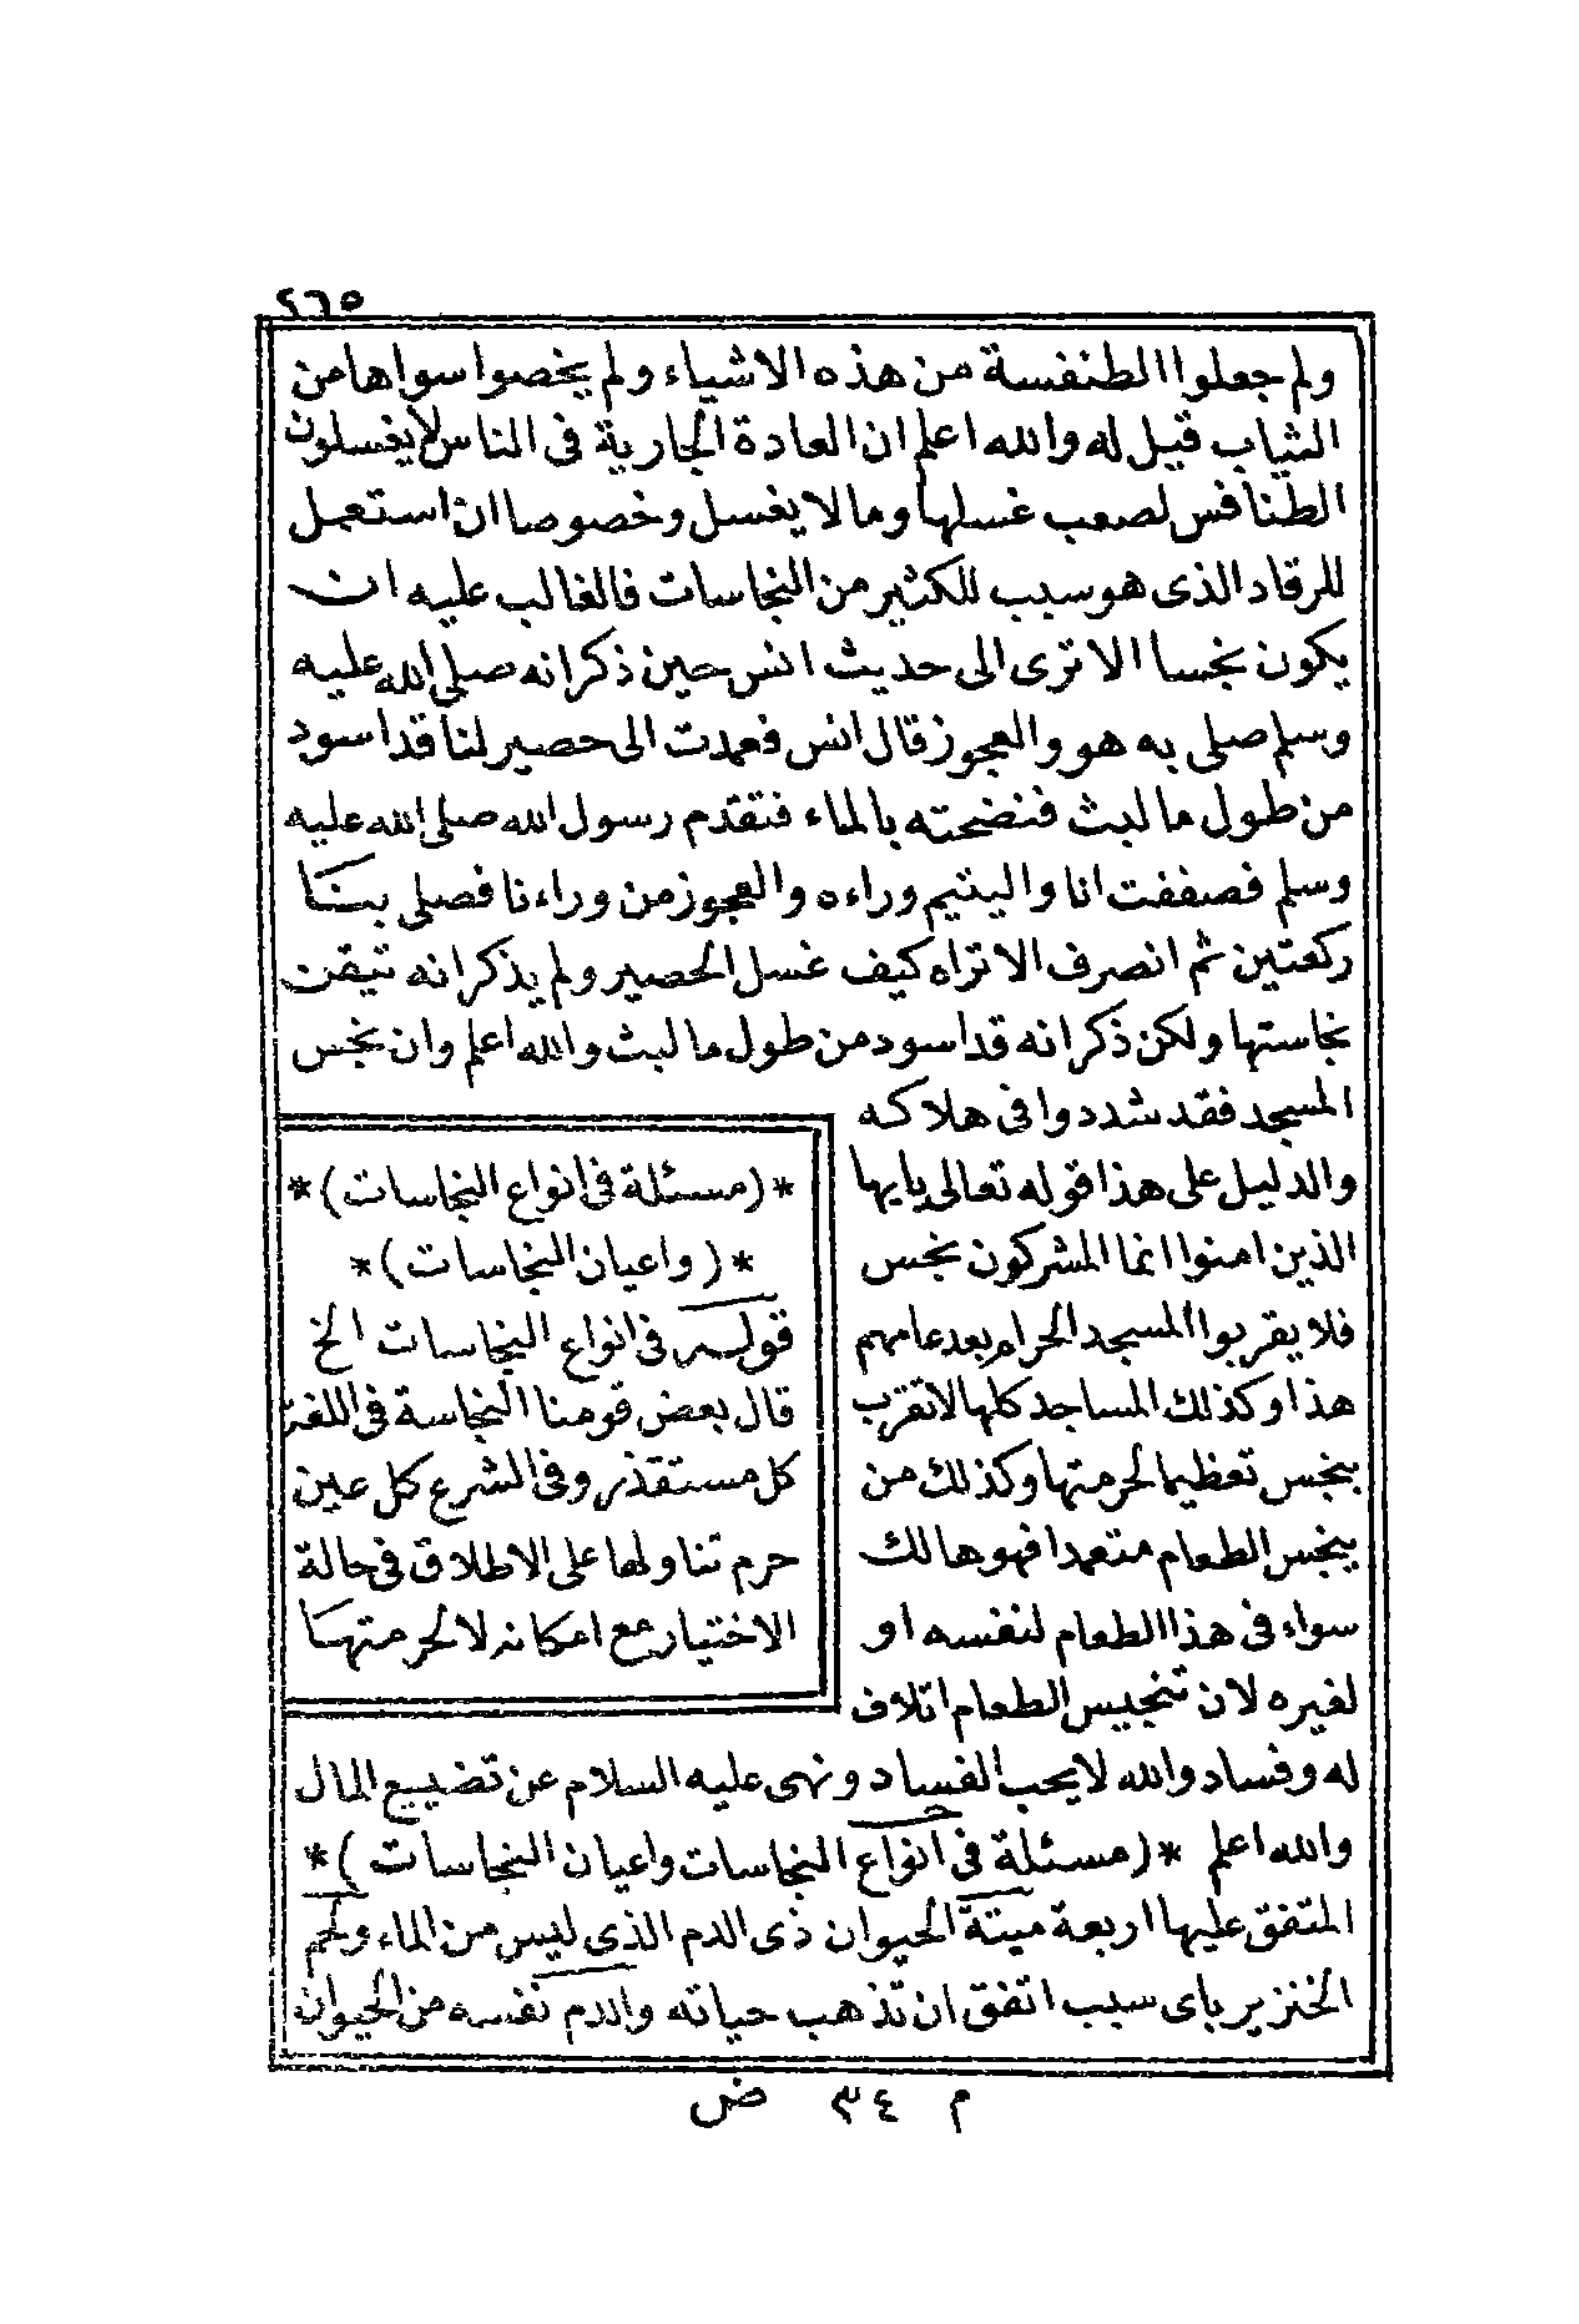 ٢٦٥
ولم جعلوا الطنفسة من هذه الاشياء ولم يخصوا سواها من
الثياب قيل له والله اعلم ان العادة الجارية فى الناس لا يغسلون
الطنافس لصعب غسلها وما لا يغسل وخصوصا ان استعمل
للرقاد الذى هو سبب للكثير من النجاسات فالغالب عليه ان
يكون نجسا الا ترى الى حديث انس حين ذكر انه صلى الله عليه
وسلم صلى به هو والعجوز قال انس فعمدت الى حصير لنا قد اسود
من طول ما لبث فنضحته بالماء فتقدم رسول الله صلى الله عليه
وسلم فصففت انا واليتيم وراءه والعجوز من وراءنا فصلى بنا
ركعتين ثم انصرف الا تراه كيف غسل الحصير ولم يذكر انه تيقن
نجاستها ولكن ذكر انه قد اسود من طول ما لبث والله اعلم وان نجس
المسجد فقد شددوا فى هلاكه
والدليل على هذا قوله تعالى يايها
الذين امنوا انما المشركون نجس
فلا يقربوا المسجد الحرام بعد عامهم
هذا وكذلك المساجد كلها لا تقرب
بنجس تعظيما لحرمتها وكذلك من
ينجس الطعام متعمدا فهو هالك
سواء فى هذا الطعام لنفسه او
لغيره لان تنجيس الطعام اتلاف
له وفساد والله لا يحب الفساد ونهى عليه السلام عن تضييع المال
والله اعلم *(مسئلة فى انواع النجاسات واعيان النجاسات)*
المتفق عليها اربعة ميتة الحيوان ذى الدم الذى ليس من الماء ولحم
الخنزير باى سبب اتفق ان تذهب حياته والدم نفسه من الحيوان
*(مسئلة فى انواع النجاسات)*
*(واعيان النجاسات)*
قوله فى انواع النجاسات الخ
قال بعض قومنا النجاسة فى اللغة
كل مستقذر وفى الشرع كل عين
حرم تناولها على الاطلاق فى حالة
الاختيار مع امكانه لا لحرمتها
م ٣٤ ض